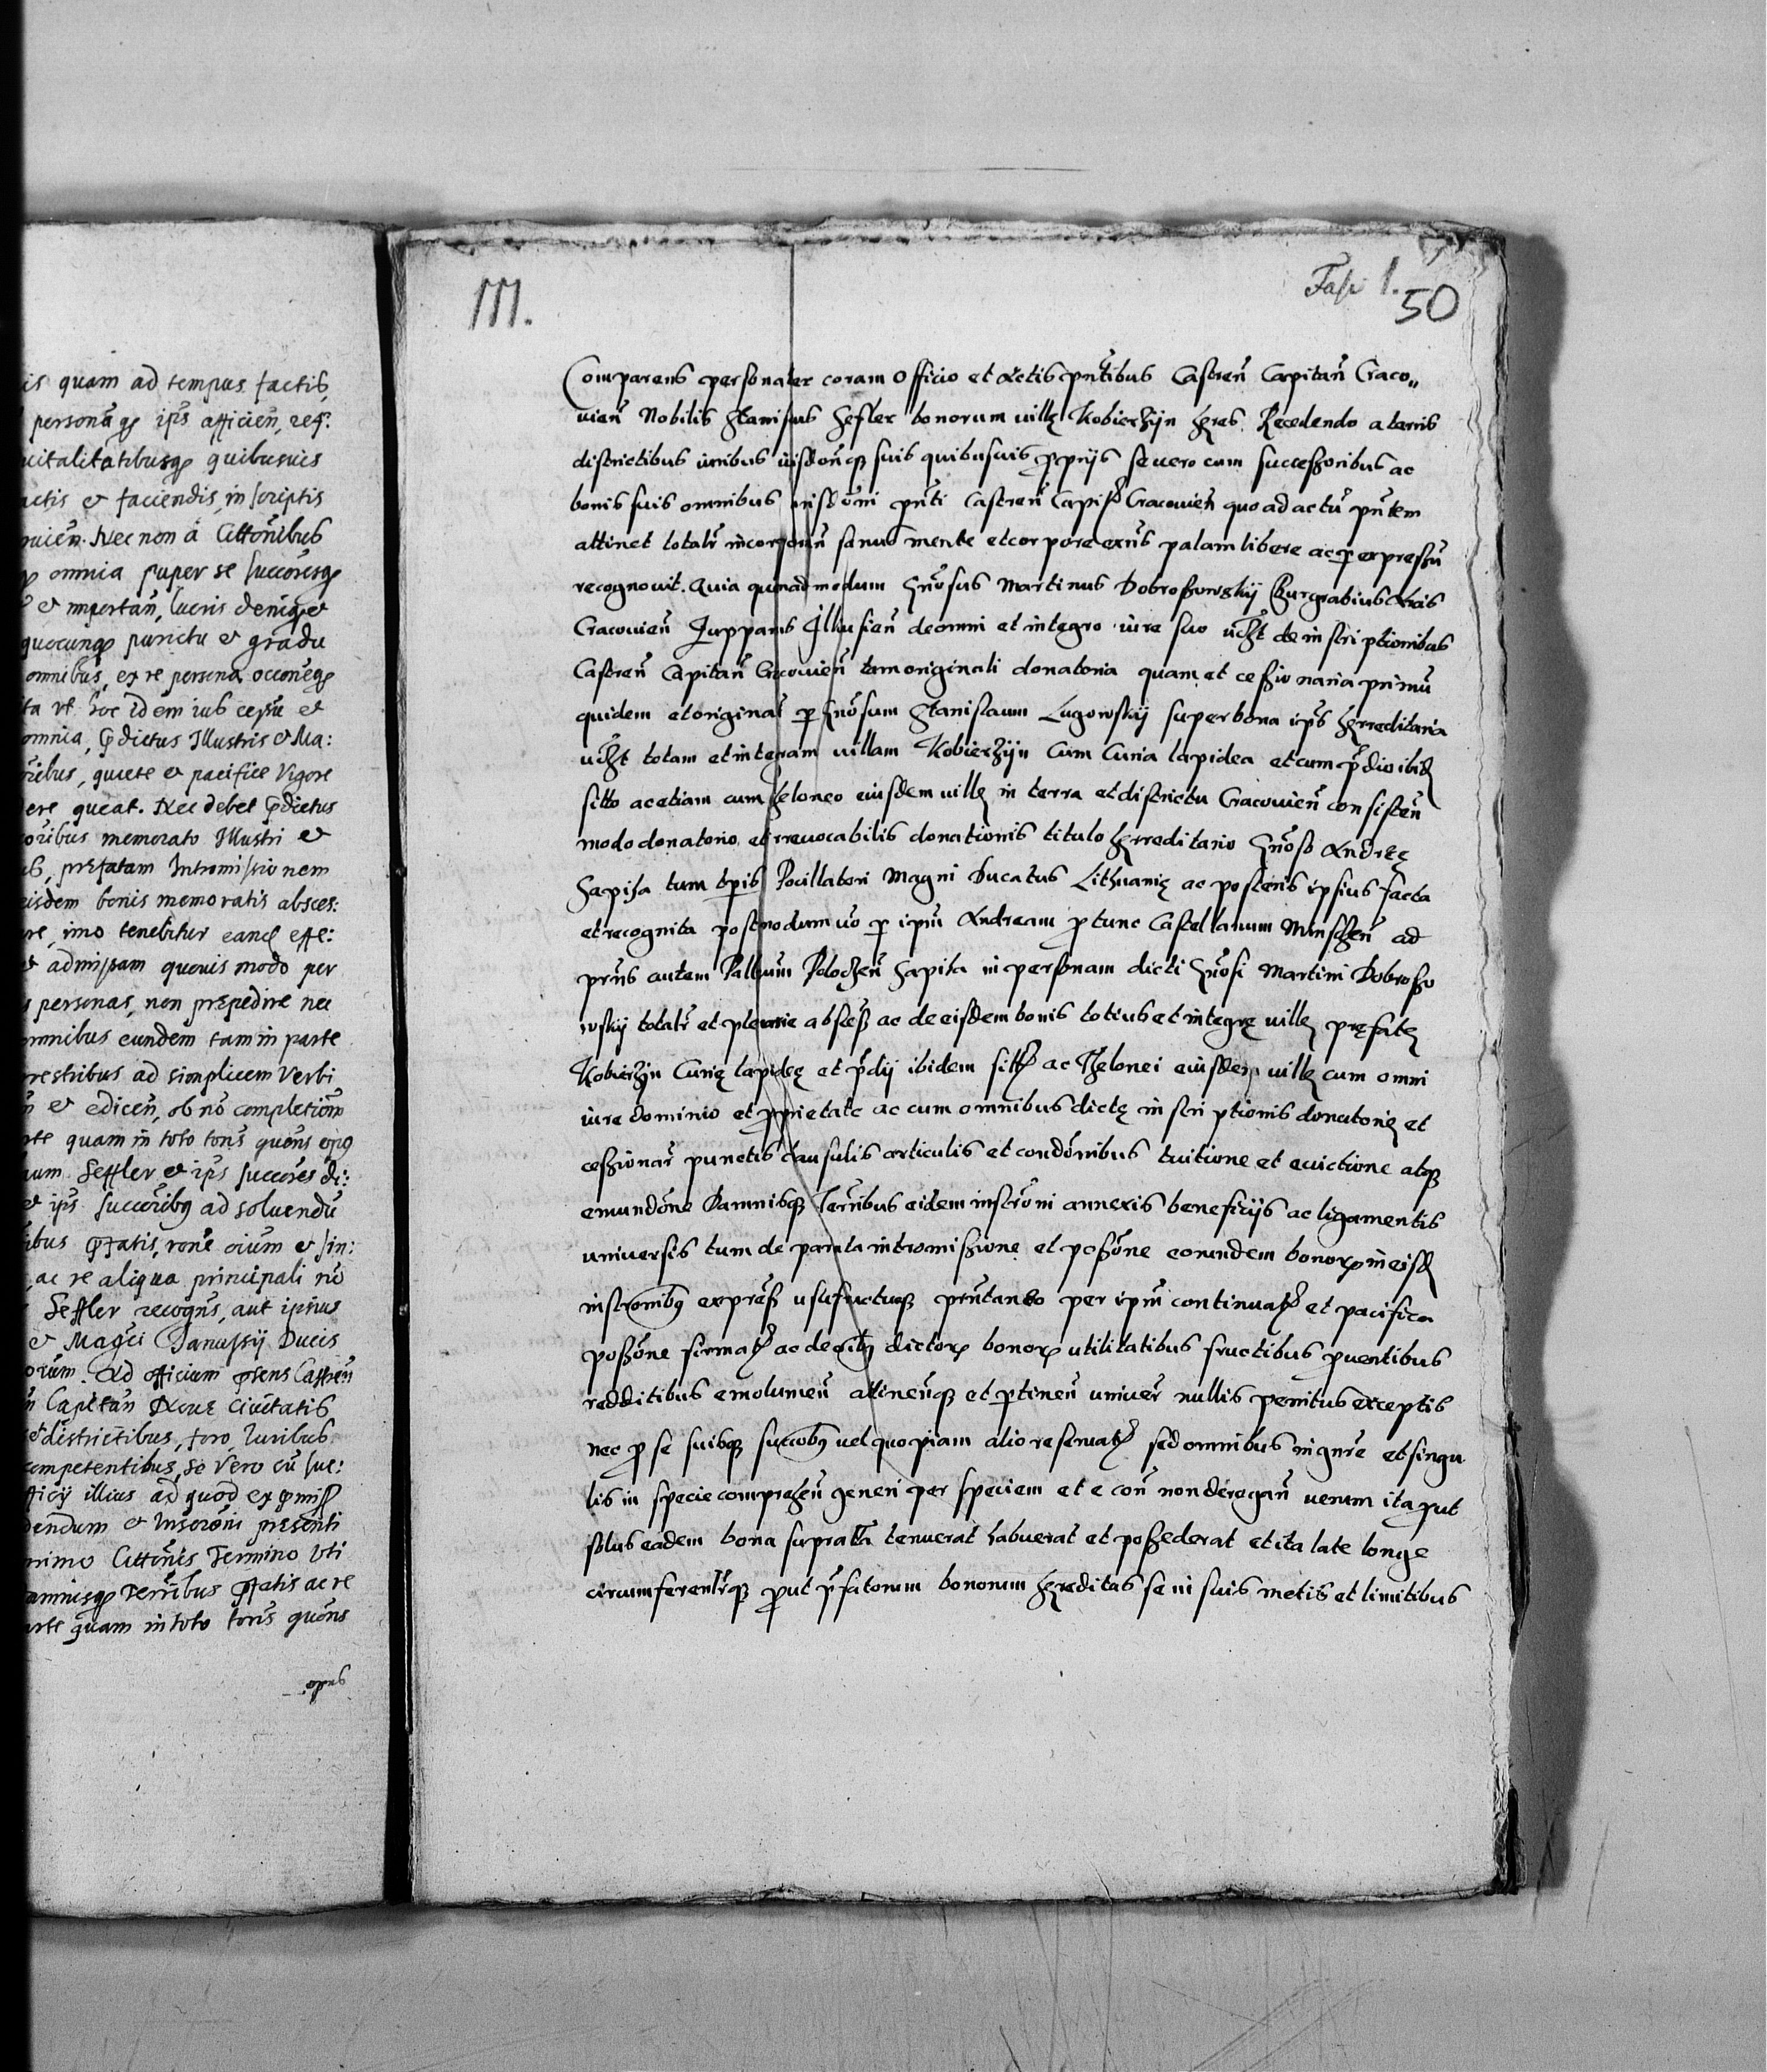 is quam ad tempus factis,
personãqꝫ ip̃s afficien̄, req̃:
uitalitatibusqꝫ quibusuis
actis & faciendis, in scriptis
uień. Nec non á Cittõnibus
omnia super se succoresqꝫ
& importań, lucris deniqꝫ &
quocunqꝫ puncto & gradu
omnibus, ex re persona occoneqꝫ
ita vt hoc idem ius cessu &
omnia, p̃dictus Illustris & Ma:
ribus, quiete & pacifice Vigore
ere queat. Nec debet p̃dictus
oribus memorato Illustri &
præfatam Intromissionem
eisdem bonis memoratis absces:
re, imo tenebitur eand effe:
& admissam quouis modo per
personas, non præpedire nec
omnibus eundem tam in parte
rrestribus ad simplicem Verbi
& edicen̄, ob no completiõnẽ
rte quam in toto toties quoties opꝰ
num Seffler & ip̃s succores di:
& ip̃s succorībꝫ ad soluendũ
ibus p̃fatis, rone oium & sin:
ac re aliqua principali nõ
Seffler recogn̄s, aut ipsius
& Magci Janussij Ducis
orum. Ad officium p̃sens Castreń
Capitań Nouæ Ciuitatis
& districtibus, foro, Iuribus
competentibus, se Vero cũ suc:
fficij illius ad quod ex p̃miss
dendum & Inscrõni præsenti
nimo Cittõnis Termino Vti
amnisqꝫ Terribus p̃fatis ac re
arte quam in toto toties quoties
opus
III.
Fasc 1.
50
Comparens personaliter coram Officio et Actis p̃ntibus Castreñ Capitañ Craco„
vieñ Nobilis Stanislaus Sefler bonorum villę Kobierzijn hęres. Recedendo a terris
districtibus iuribus iurisdoñqꝫ suis quibusuis p̃prijs se vero cum successoribus ac
bonis suis omnibus iurisdõni p̃nti Castreñ Capitꝭ Cracovieñ quo ad actũ p̃ntem
attinet totalr̃ incorporañ sanus mente et corpore exñs palam libere ac p expressũ
recognovit. Quia quemadmodum Gñosus Martinus Dobroszowskij Burgrabius Arcis
Cracovieñ Juppariꝰ Ilkusieñ de omni et integro iure suo vczt de inscriptionibus
Castreñ Capitañ Cracovieñ tam originali donatoria quam et cessionaria primũ
quidem et originalr̃ p Gñosum Stanislaum Lugowskij super bona ip̃s hęreditaria
vczt totam et integram villam Kobierzijn Cum Curia lapidea et cum p̃dio ibid
sitto ac etiam cum theloneo eiusdem villę in terra et districtu Cracovieñ consisteñ
modo donatorio et irrevocabilis donationis titulo hęreditario Gñoso Andreę
Sapiha tum tp̃is Pocillatori Magni Ducatus Lithuanię ac posteris ipsius facta
et recognita postmodum vo p ip̃m Andream p tunc Castellanum Minscheñ ad
p̃ns autem Pallatinum Poloczeñ Sapiha in personam dicti Gñosi Martini Dobroszo
wskij totalr̃ et plenarie abscess ac de eisdem bonis totius et integrę villę pręfatę
Kobierzijn Curię lapidęę et p̃dij ibidem sittꝭ ac Thelonei eiusdem villę cum omni
iure dominio et p̃prietate ac cum omnibus dictę inscriptionis donatorię et
cessionar̃ punctis clausulis articulis et condõnibus tuitione et evictione atqꝫ
emundõne Damnisqꝫ terr̃ibus eidem inscrõni annexis beneficijs ac ligamentis
universis tum de parata intromissione et possõne eorundem bonorꝫ in eisd
inscronibꝫ express usufructuqꝫ p̃ntaneo per ip̃m continuatꝭ et pacifica
possõne firmatꝭ ac de oĩbꝫ dictorꝫ bonorꝫ utilitatibus fructibus p̃ventibus
redditibus emolumeñ attineñqꝫ et p̃tineñ univer̃ nullis penitus exceptis
nec p se suisqꝫ succõbꝫ vel quopiam alio reservatꝭ sed omnibus in gñre et singu
lis in specie compreheñ generi per speciem et e coñ non derogañ verum ita put
solus eadem bona suprattã tenuerat habuerat et possederat et ita late longe
circumferentr̃qꝫ put p̃fatorum bonorum hęreditas se in suis metis et limitibus